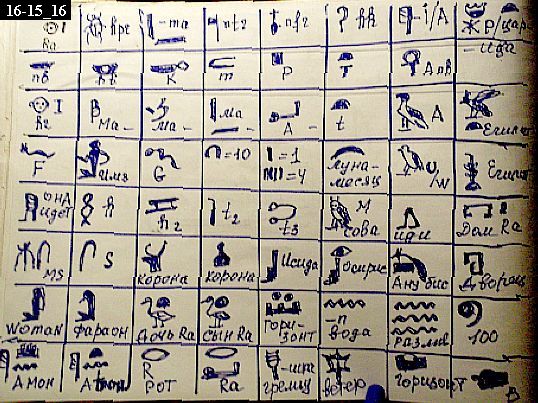 16-15_16
Ra hpr -ma ntz nfr ? hk -i/A Р/цар-
nb hb K m P T Anh ида
hz Ma- Ma- Ma- A- t A Египет
F имя G =10 =1 =4 Луна-месяц и/w Египет
она идет h hz tz t3 М сова иди Дом Ra
MS S корона корона Исида Осирис Анубис Дворец
Woman Фараон Дочь Ra Сын Ra Горизонт -n вода разлив 100
Амон Атон R рот Ra ветер горизонт В